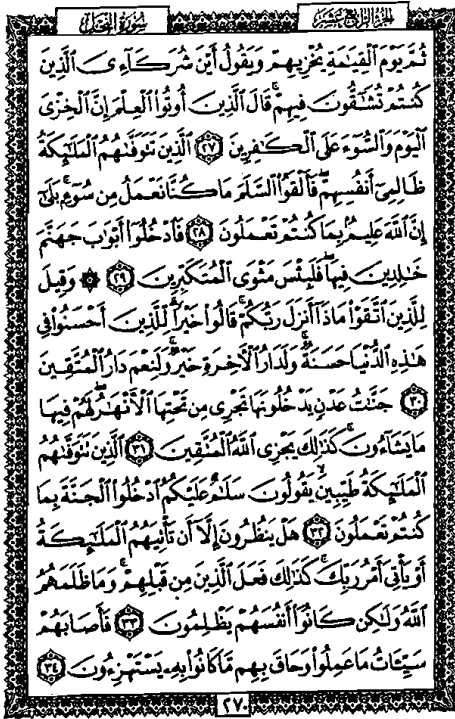 الجزء الرابع عشر سورة النحل
ثُمَّ يَوْمَ ٱلْقِيَٰمَةِ يُخْزِيهِمْ وَيَقُولُ أَيْنَ شُرَكَآءِىَ ٱلَّذِينَ
كُنتُمْ تُشَٰٓقُّونَ فِيهِمْ ۚ قَالَ ٱلَّذِينَ أُوتُوا۟ ٱلْعِلْمَ إِنَّ ٱلْخِزْىَ
ٱلْيَوْمَ وَٱلسُّوٓءَ عَلَى ٱلْكَٰفِرِينَ ٢٧ ٱلَّذِينَ تَتَوَفَّىٰهُمُ ٱلْمَلَٰٓئِكَةُ
ظَالِمِىٓ أَنفُسِهِمْ ۖ فَأَلْقَوُا۟ ٱلسَّلَمَ مَا كُنَّا نَعْمَلُ مِن سُوٓءٍۭ ۚ بَلَىٰٓ
إِنَّ ٱللَّهَ عَلِيمٌۢ بِمَا كُنتُمْ تَعْمَلُونَ ٢٨ فَٱدْخُلُوٓا۟ أَبْوَٰبَ جَهَنَّمَ
خَٰلِدِينَ فِيهَا ۖ فَلَبِئْسَ مَثْوَى ٱلْمُتَكَبِّرِينَ ٢٩ ۞ وَقِيلَ
لِلَّذِينَ ٱتَّقَوْا۟ مَاذَآ أَنزَلَ رَبُّكُمْ ۚ قَالُوا۟ خَيْرًا ۗ لِّلَّذِينَ أَحْسَنُوا۟ فِى
هَٰذِهِ ٱلدُّنْيَا حَسَنَةٌ ۚ وَلَدَارُ ٱلْءَاخِرَةِ خَيْرٌ ۚ وَلَنِعْمَ دَارُ ٱلْمُتَّقِينَ
٣٠ جَنَّٰتُ عَدْنٍ يَدْخُلُونَهَا تَجْرِى مِن تَحْتِهَا ٱلْأَنْهَٰرُ ۖ لَهُمْ فِيهَا
مَا يَشَآءُونَ ۚ كَذَٰلِكَ يَجْزِى ٱللَّهُ ٱلْمُتَّقِينَ ٣١ ٱلَّذِينَ تَتَوَفَّىٰهُمُ
ٱلْمَلَٰٓئِكَةُ طَيِّبِينَ ۙ يَقُولُونَ سَلَٰمٌ عَلَيْكُمُ ٱدْخُلُوا۟ ٱلْجَنَّةَ بِمَا
كُنتُمْ تَعْمَلُونَ ٣٢ هَلْ يَنظُرُونَ إِلَّآ أَن تَأْتِيَهُمُ ٱلْمَلَٰٓئِكَةُ
أَوْ يَأْتِىَ أَمْرُ رَبِّكَ ۚ كَذَٰلِكَ فَعَلَ ٱلَّذِينَ مِن قَبْلِهِمْ ۚ وَمَا ظَلَمَهُمُ
ٱللَّهُ وَلَٰكِن كَانُوٓا۟ أَنفُسَهُمْ يَظْلِمُونَ ٣٣ فَأَصَابَهُمْ
سَيِّـَٔاتُ مَا عَمِلُوا۟ وَحَاقَ بِهِم مَّا كَانُوا۟ بِهِۦ يَسْتَهْزِءُونَ ٣٤
٢٧٠